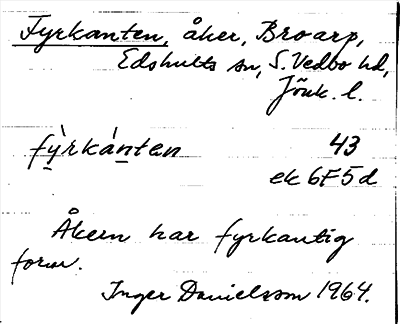 Fyrkanten, åker, Broarp,
Edshults sn, S. Vedbo hd,
Jönk. l.
fỳrkánten 43
ek 6F5d
Åkern har fyrkantig
form.
Inger Danielsson 1964.